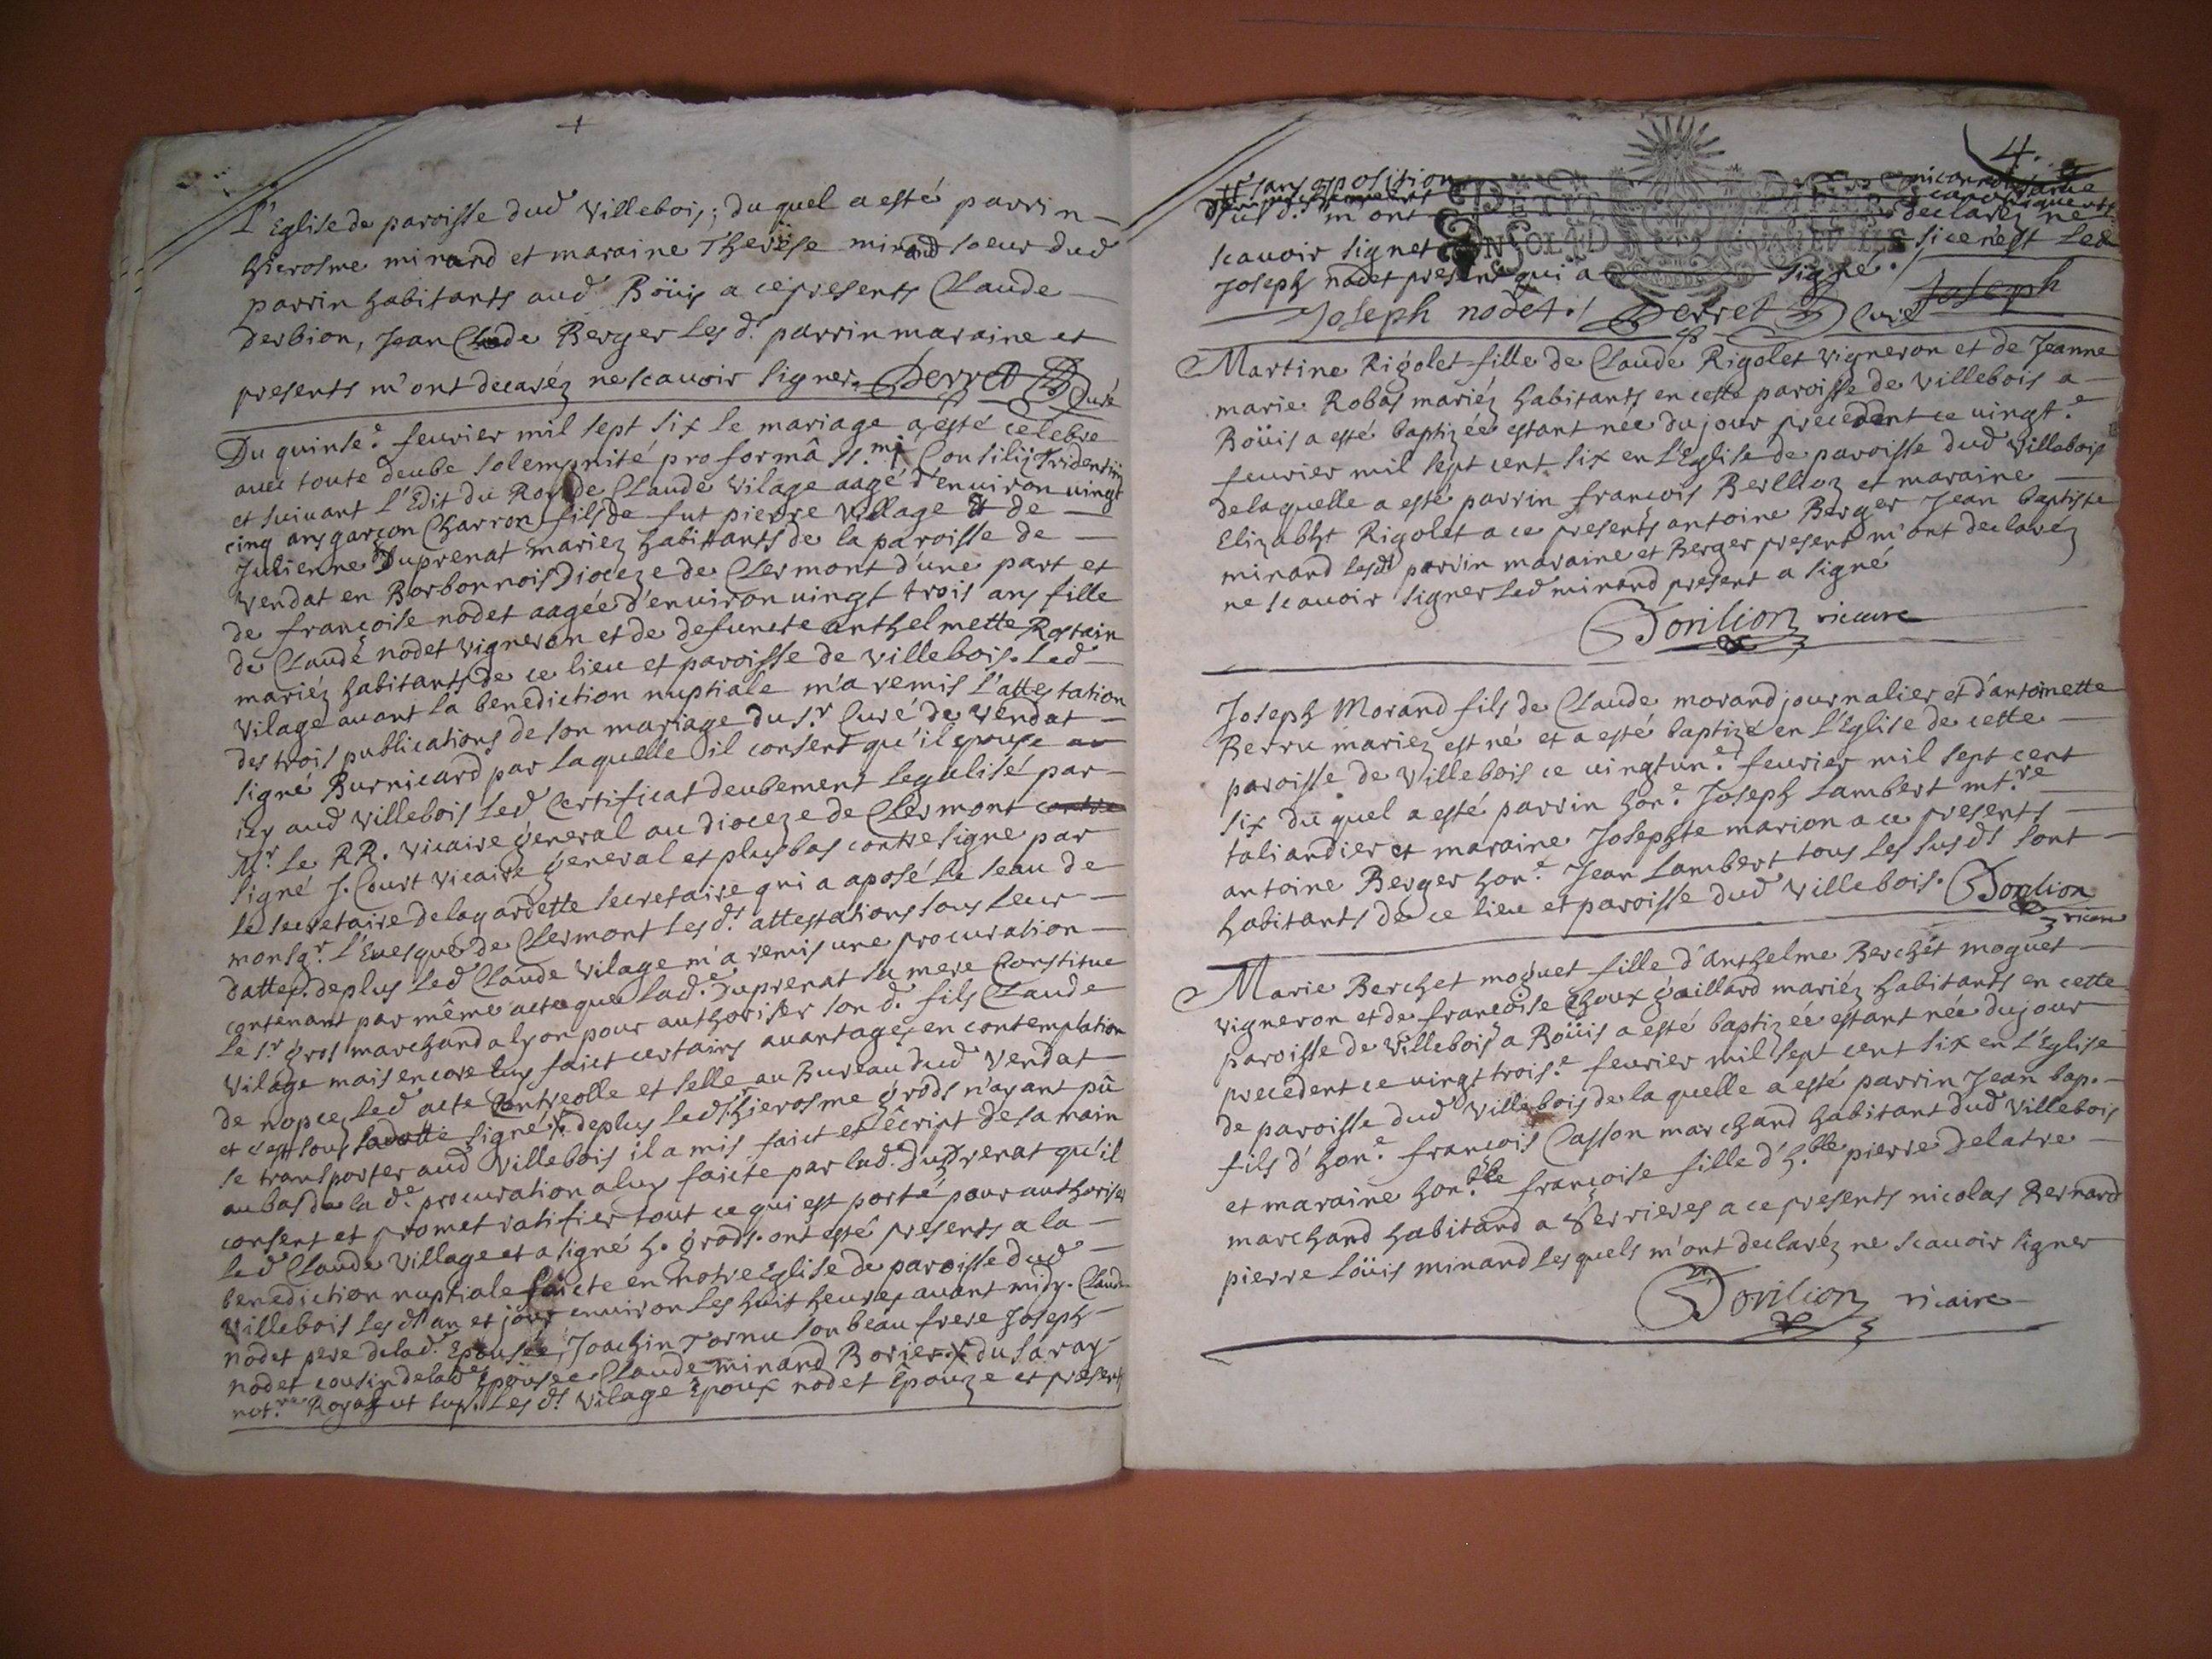 L'Eglise de paroisse dud villebois; du quel a esté parrin
hierosme minand et maraine Therese minand soeur dud
parrin habitants aud Boüis a ce presents Claude
derbion, Jean Claude Berger les d.ts parrin maraine et
presents m'ont decaréz ne scavoir signer. Derret Curé
Du quinse.e feurier mil sept six le mariage a esté celebre
avec toute deube solempnité pro formâ ss.mi Consilij Tridentin
et suivant l'Edit du Roy de Claude vilage aagé d'environ uingt
cinq ans garçon Charron fils de fut pierre village et de
Julienne Duprenat mariez habitants de la paroisse de
vendat en Borbonnois Dioceze de Clermont d'une part et
de françoise nodet aagée d'environ uingt trois ans fille
de Claude nodet vigneron et de defuncte anthelmette Rostain
mariéz habitants de ce lieu et paroisse de villebois. Led
vilage avant la benediction nuptiale m'a remis l'attestation
des trois publications de son mariage du s.r Curé de vendat
signé Burnicard par laquelle il consent qu'il epouse
icy aud villebois led Certificat deubement legalisé par
M.r le RR. vicaire general au dioceze de Clermont contre
signé J. Court vicaire general et plus bas contresigne par
le secretaire delagardette secretaire qui a aposé le seau de
monsg.r l'Evesque de Clermont les d.ts attestations sous leur
dattes. de plus led Claude vilage m'a remis une procuration
contenant par même acte que lad.e Duprenat sa mere Constitue
le s.r gros marchand a lyon pour authoriser son d. fils Claude
vilage mais encore luy faict certains avantages en contemplation
de nopces led acte Controolle et selle au Bureau dud vendat
et c'est sous signé de plus led s.r hierosme grods n'ayant pû
se transporter aud villebois il a mis faict et êcript de sa main
au bas de la d.e procuration a luy faicte par lad. Duprenat qu'il
consent et promet ratifier tout ce qui est porté pour authoriser
led Claude village et a signé h. grods. ont esté presents a la
benediction nuptiale faicte en notre Eglise de paroisse dud
villebois les d.ts an et jour environ les huit heures avant midy. Claude
nodet pere de lad. Epousée, Joachin Tornu son beau frere Joseph
nodet cousin de lad.e Epousée Claude minand Borier du saray
not.re Royal ut sup. les d.ts vilage Epoux nodet Epouze et presents
4.
sans oposition
m'ont declaréz ne
scavoir signer si ce n'est led
Joseph nodet present qui a signé.
Joseph nodet. Derret Curé Joseph
Martine Rigolet fille de Claude Rigolet vigneron et de Jeanne
marie Robas mariéz habitants en cette paroisse de villebois a
Boüis a esté baptizée estant nee du jour precedent ce uingt.e
feurier mil sept cent six en l'Eglise de paroisse dud villebois
de laquelle a esté parrin françois Berllioz et maraine
Elizabht Rigolet a ce presents antoine Berger Jean baptiste
minand lesdt parrin maraine et Berger present m'ont declaréz
ne scavoir signer led minand present a signé
Dorilion vicaire
Joseph Morand fils de Claude morand journalier et d'antoinette
Berru mariez est né et a esté baptizé en l'Eglise de cette
paroisse de villebois ce uingtun.e feurier mil sept cent
six du quel a esté parrin hon.e Joseph Lambert mt.re
taliandier et maraine Josephte marion a ce presents
antoine Berger hon.e Jean Lambert tous les susdts sont
habitants de ce lieu et paroisse dud villebois. Dorilion
vicaire
Marie Berchet moguet fille d'Anthelme Berchet moguet
vigneron et de francoise Choux gaillard mariéz habitants en cette
paroisse de villebois a Boüis a esté baptizée estant née du jour
precedent ce uingt trois.e feurier mil sept cent six en l'Eglise
de paroisse dud villebois de la quelle a esté parrin Jean bap.
fils d'hon.e françois Casson marchand habitant dud villebois
et maraine hon.ble françoise fille d'h.ble pierre Delatre
marchand habitand a Serrieres a ce presents nicolas Bernard
pierre Loüis minand lesquels m'ont declaréz ne scavoir signer
Dorilion vicaire